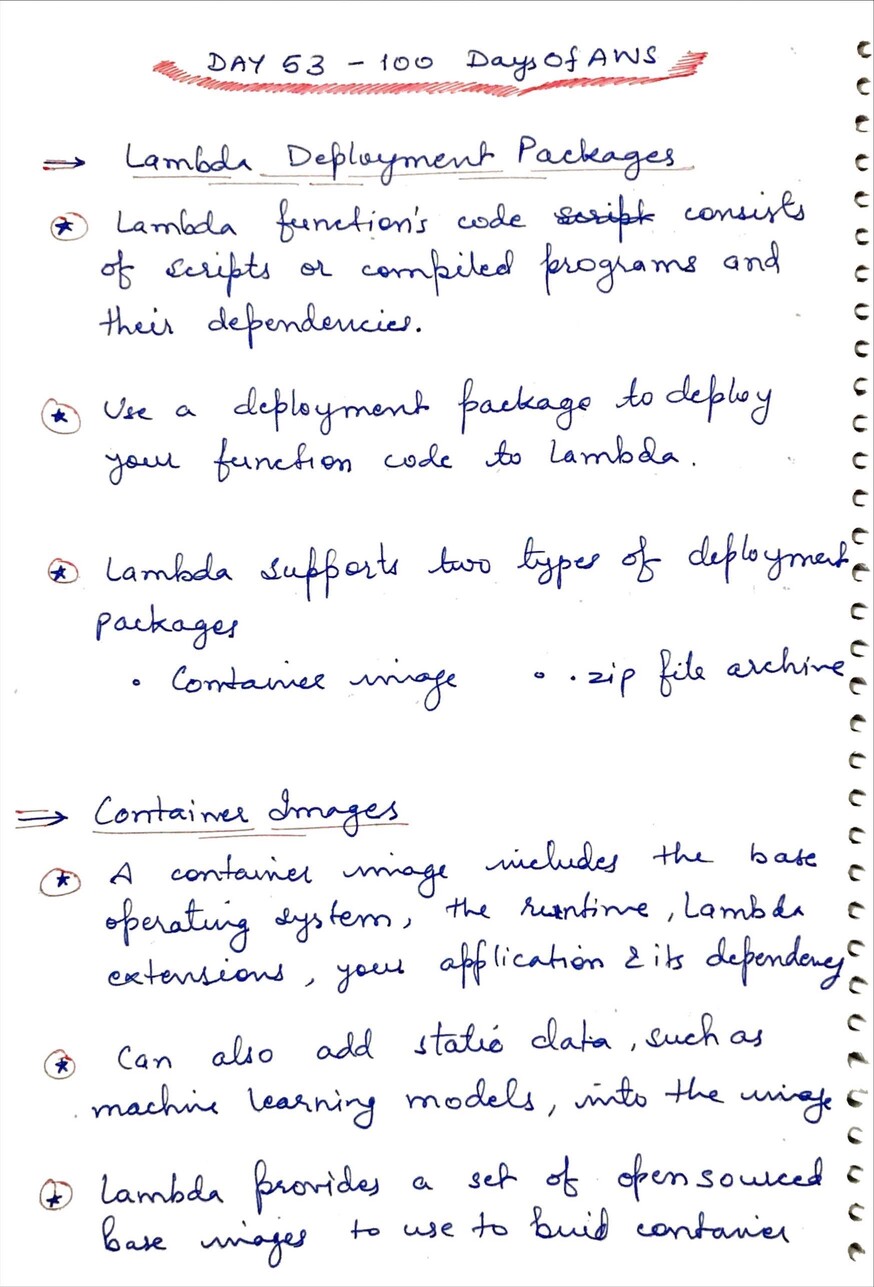 DAY 53 - 100 DaysOfAWS
⇒ Lambda Deployment Packages
★ Lambda function's code script consists
of scripts or compiled programs and
their dependencies.
★ Use a deployment package to deploy
your function code to Lambda.
★ Lambda supports two types of deployment
packages
• Container image • .zip file archive
⇒ Container Images
★ A container image includes the base
operating system, the runtime, Lambda
extensions, your application & its dependency
★ Can also add static data, such as
machine learning models, into the image
★ Lambda provides a set of open sourced
base images to use to buid container